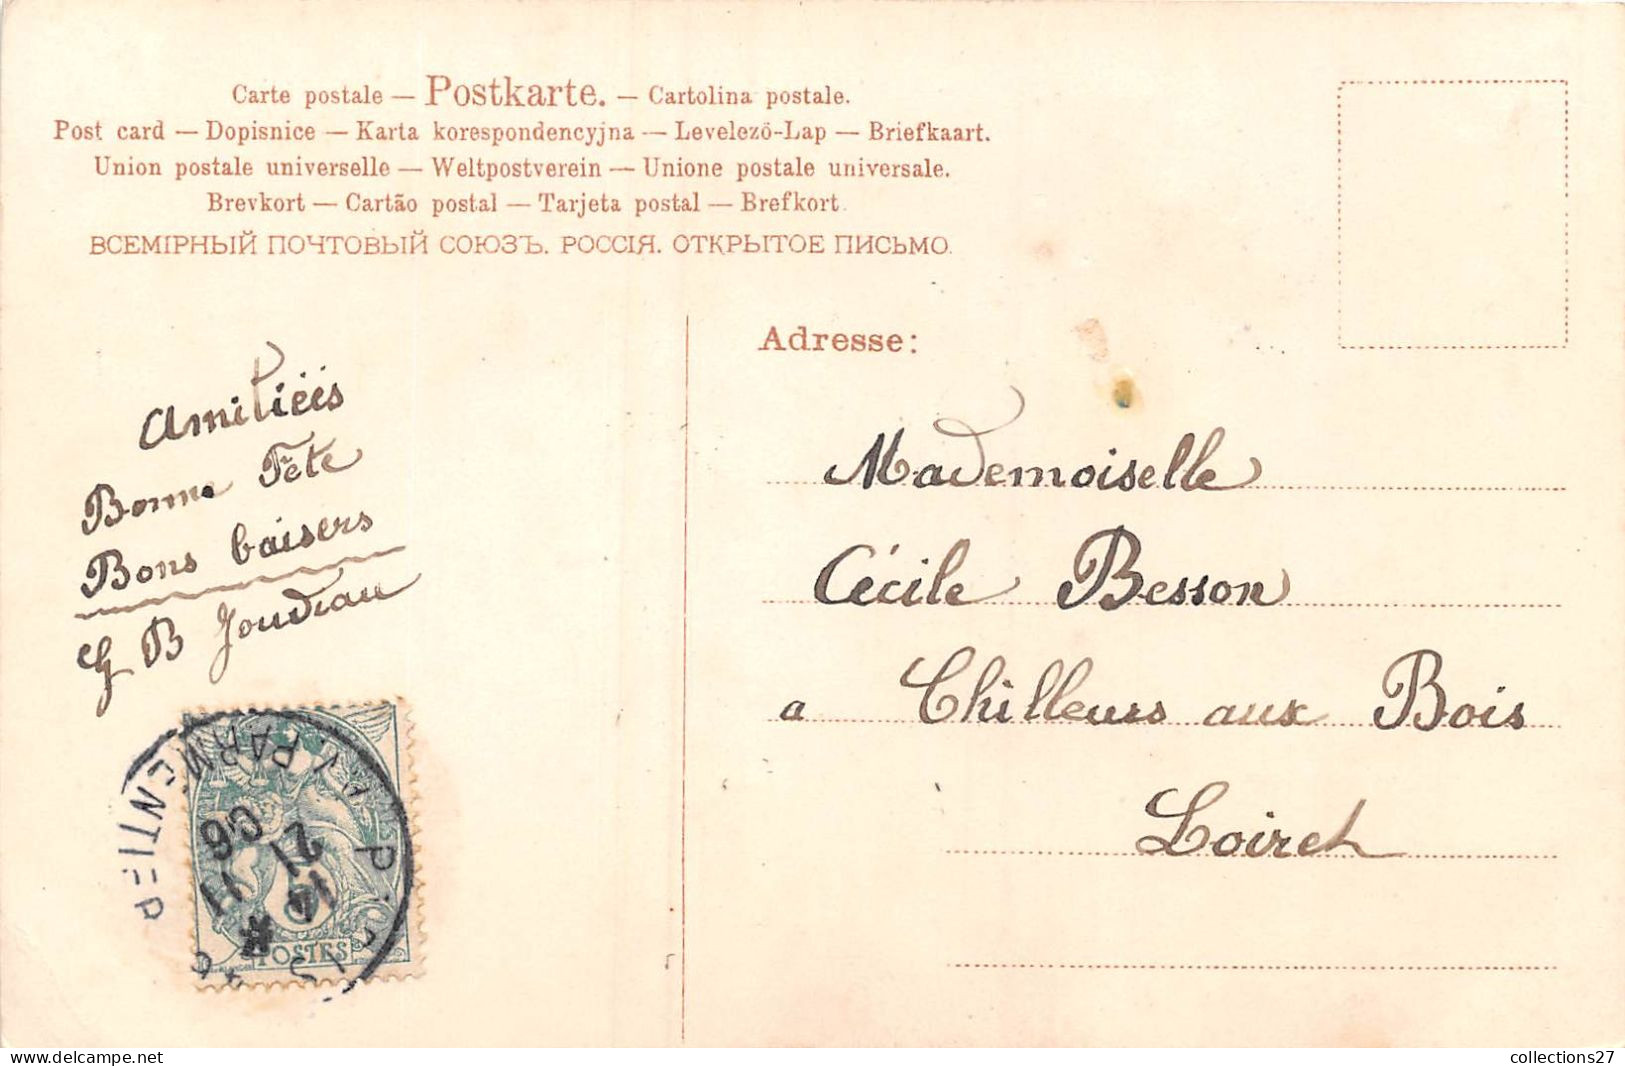 Carte postale — Postkarte. — Cartolina postale.
Post card — Dopisnice — Karta korespondencyjna — Levelezö-Lap — Briefkaart.
Union postale universelle — Weltpostverein — Unione postale universale.
Brevkort — Cartão postal — Tarjeta postal — Brefkort.
ВСЕМІРНЫЙ ПОЧТОВЫЙ СОЮЗЪ. РОССІЯ. ОТКРЫТОЕ ПИСЬМО.
Amitiéés
Bonne Fête
Bons baisers
G B Joudiau
Adresse:
Mademoiselle
Cécile Besson
a Chilleurs aux Bois
Loiret
AV. PARMENTIER
21
11
06
POSTES
collections27